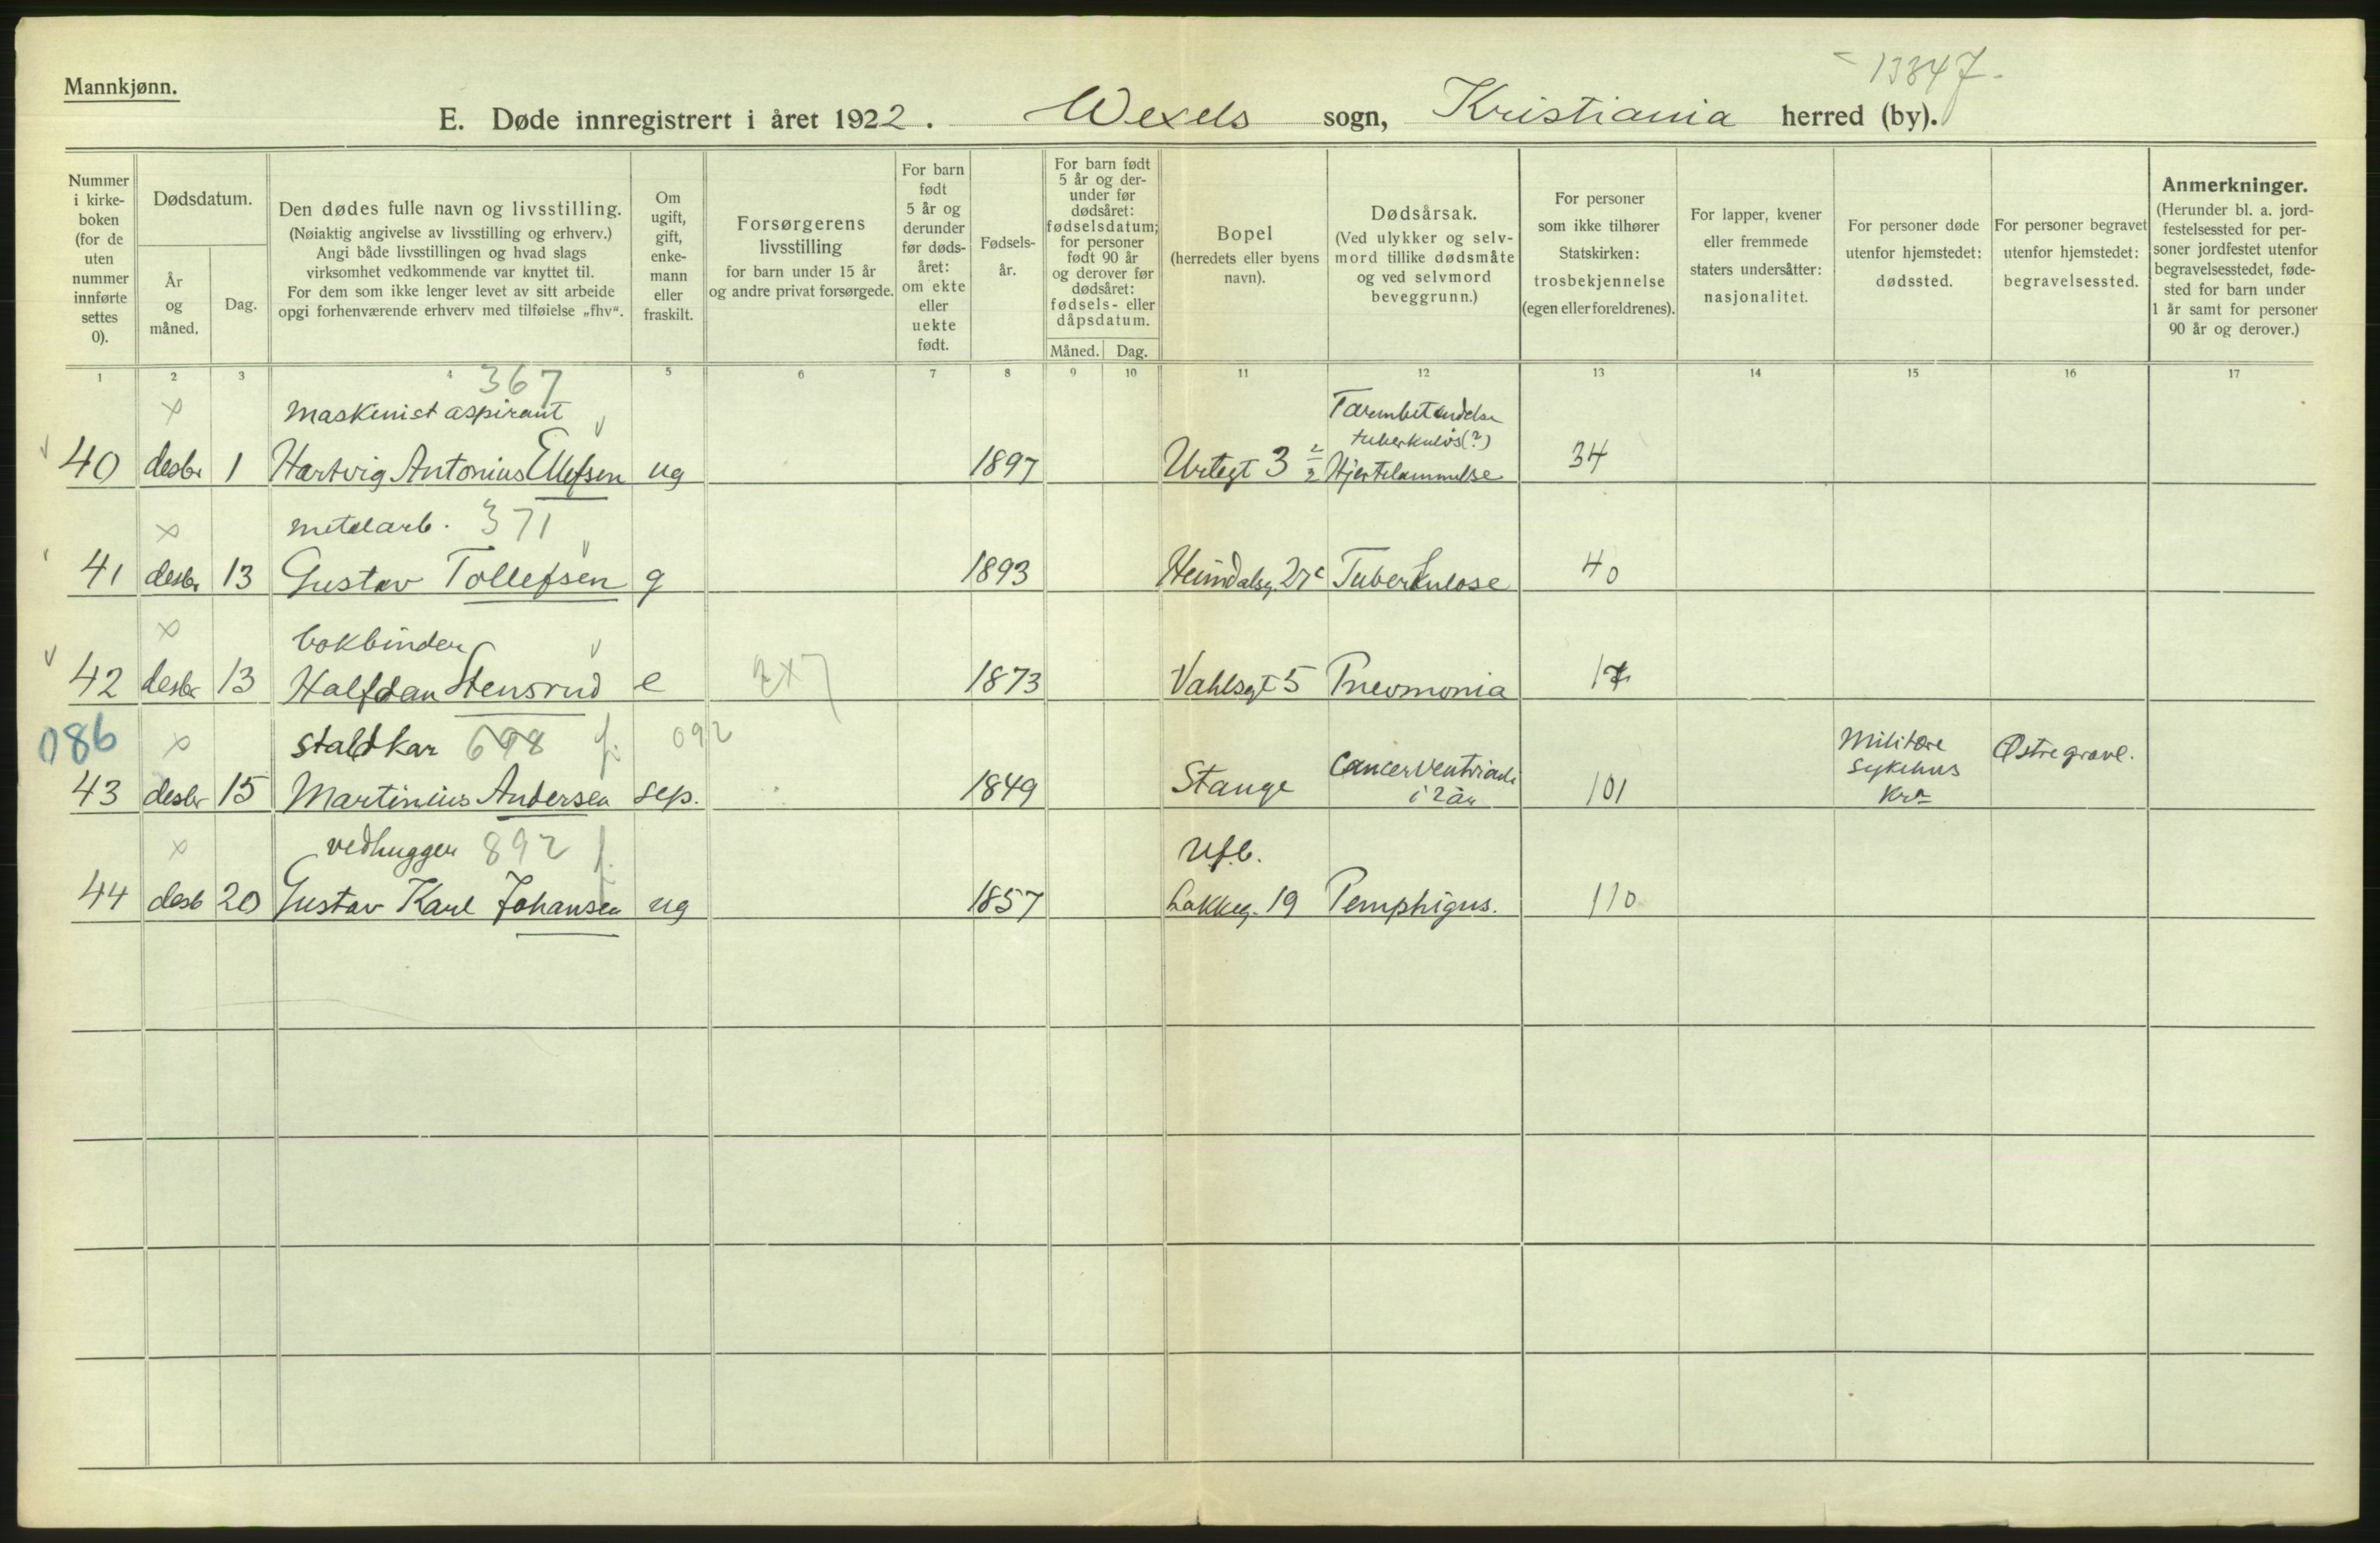 13847
Mannkjønn.
E. Døde innregistrert i året 1922. Wexels sogn, Kristiania herred (by).
Nummer i kirkeboken (for de uten nummer innførte settes 0).
Dødsdatum.
År og måned.
Dag.
Den dødes fulle navn og livsstilling.
(Nøiaktig angivelse av livsstilling og erhverv.)
Angi både livsstillingen og hvad slags
virksomhet vedkommende var knyttet til.
For dem som ikke lenger levet av sitt arbeide
opgi forhenværende erhverv med tilføielse „fhv“.
Om ugift, gift, enkemann eller fraskilt.
Forsørgerens
livsstilling
for barn under 15 år
og andre privat forsørgede.
For barn født 5 år og derunder før dødsåret: om ekte eller uekte født.
Fødselsår.
For barn født 5 år og derunder før dødsåret: fødselsdatum; for personer født 90 år og derover før dødsåret: fødsels- eller dåpsdatum.
Måned. Dag.
Bopel
(herredets eller byens navn).
Dødsårsak.
(Ved ulykker og selvmord tillike dødsmåte og ved selvmord beveggrunn.)
For personer som ikke tilhører Statskirken: trosbekjennelse (egen eller foreldrenes).
For lapper, kvener eller fremmede staters undersåtter: nasjonalitet.
For personer døde utenfor hjemstedet: dødssted.
For personer begravet utenfor hjemstedet: begravelsessted.
Anmerkninger.
(Herunder bl. a. jordfestelsessted for personer jordfestet utenfor begravelsesstedet, fødested for barn under 1 år samt for personer 90 år og derover.)
1 2 3 4 5 6 7 8 9 10 11 12 13 14 15 16 17
367
x Maskinist aspirant v Tarmbetendelse
tuberkuløs (?)
v 40 desbr 1 Hartvig Antonius Ellefsen ug 1897 Urtegt 3 Hjertelammelse 34
x metalarb. 371 v
41 desbr 13 Gustav Tollefsen g 1893 Heimdalsg. 27c Tuberkulose 40
x bokbinder v
v 42 desbr 13 Halfdan Stensrud e 1873 Vahlsgt 5 Pneomonia 17
086 x staldkar 698 f. 092 Militære
sykehus
Kra
Østre gravl.
43 desbr 15 Martinius Andersen sep. 1849 Stange Cancer ventriculi
i 2 år 101
x vedhugger 892 f. Ufb.
44 desb 20 Gustav Karl Johansen ug 1857 Lakkeg. 19 Pemphigus. 110